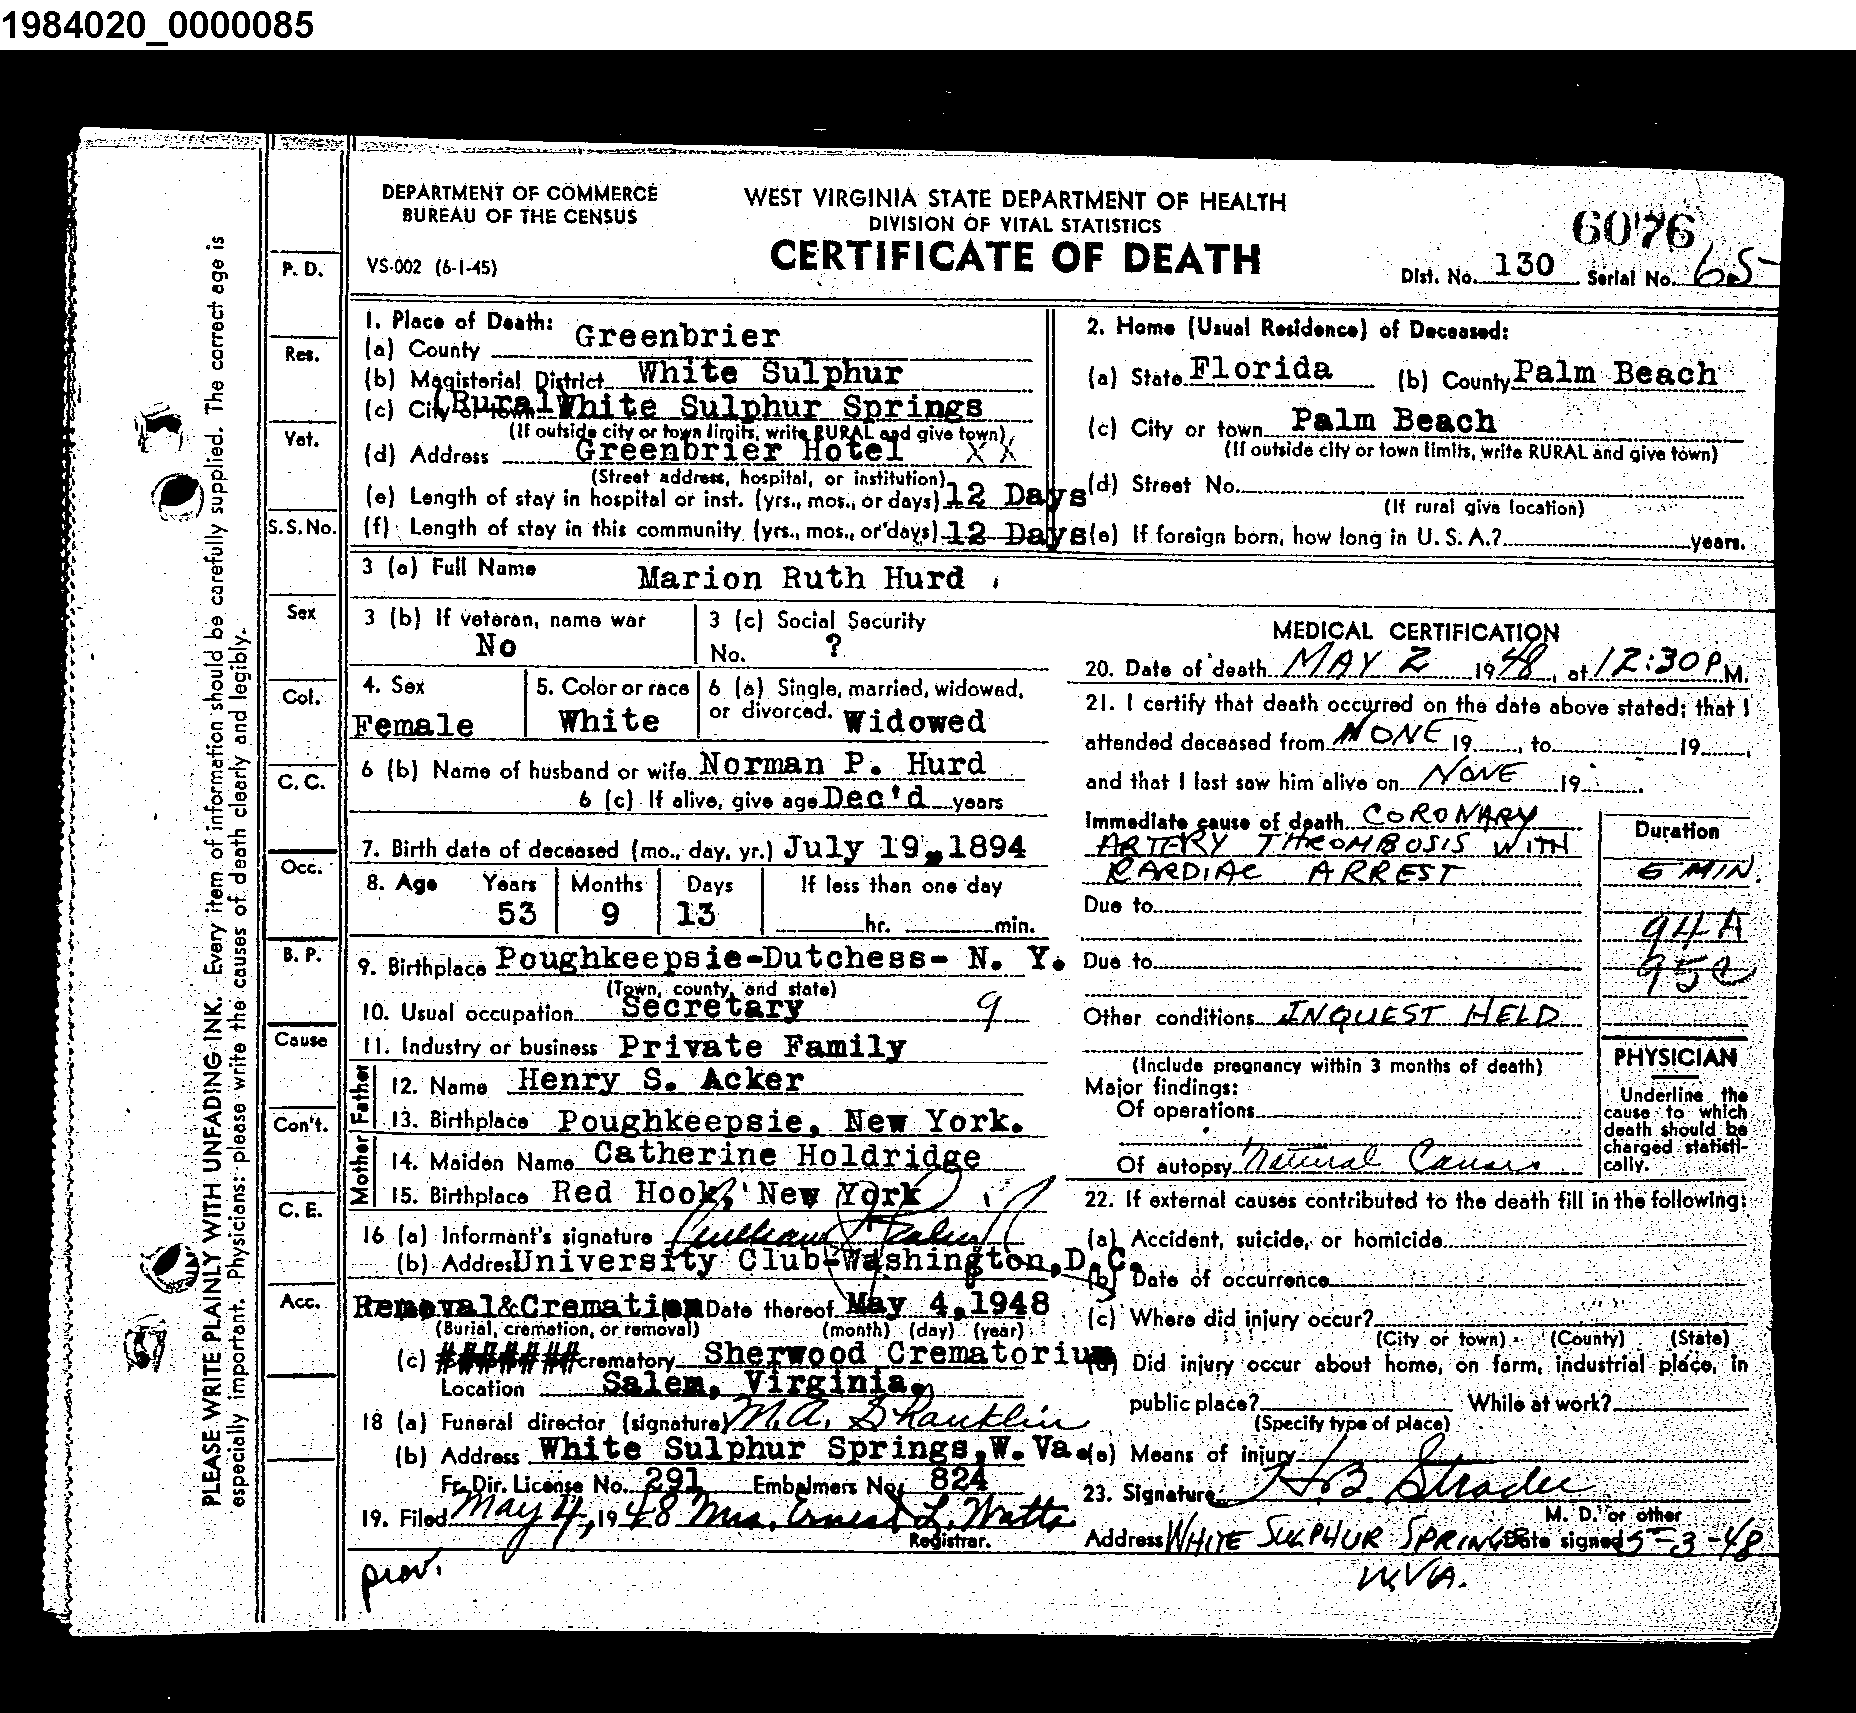 1984020_0000085
DEPARTMENT OF COMMERCE
BUREAU OF THE CENSUS
VS-002 (6-1-45)
WEST VIRGINIA STATE DEPARTMENT OF HEALTH
DIVISION OF VITAL STATISTICS
CERTIFICATE OF DEATH
6076
Dist. No. 130 Serial No. 65
PLEASE WRITE PLAINLY WITH UNFADING INK. Every item of information should be carefully supplied. The correct age is
especially important. Physicians: please write the causes of death clearly and legibly.
P. D.
Res.
Vet.
S. S. No.
Sex
Col.
C. C.
Occ.
B. P.
Cause
Con't.
C. E.
Acc.
1. Place of Death:
(a) County Greenbrier
(b) Magisterial District White Sulphur
(c) City or town (Rural) White Sulphur Springs
(If outside city or town limits, write RURAL and give town)
(d) Address Greenbrier Hotel XX
(Street address, hospital, or institution)
(e) Length of stay in hospital or inst. (yrs., mos., or days) 12 Days
(f) Length of stay in this community (yrs., mos., or days) 12 Days
2. Home (Usual Residence) of Deceased:
(a) State Florida (b) County Palm Beach
(c) City or town Palm Beach
(If outside city or town limits, write RURAL and give town)
(d) Street No.
(If rural give location)
(e) If foreign born, how long in U. S. A.? years.
3 (a) Full Name Marion Ruth Hurd
3 (b) If veteran, name war
No
3 (c) Social Security
No. ?
4. Sex
Female
5. Color or race
White
6 (a) Single, married, widowed,
or divorced. Widowed
6 (b) Name of husband or wife Norman P. Hurd
6 (c) If alive, give age Dec'd years
7. Birth date of deceased (mo., day, yr.) July 19, 1894
8. Age Years Months Days If less than one day
53 9 13 hr. min.
9. Birthplace Poughkeepsie-Dutchess- N. Y.
(Town, county, and state)
10. Usual occupation Secretary 9
11. Industry or business Private Family
Father
12. Name Henry S. Acker
13. Birthplace Poughkeepsie, New York.
Mother
14. Maiden Name Catherine Holdridge
15. Birthplace Red Hook, New York
16 (a) Informant's signature William
(b) Address University Club-Washington, D. C.
Removal&Cremation Date thereof May 4, 1948
(Burial, cremation, or removal) (month) (day) (year)
(c) ####### crematory Sherwood Crematorium
Location Salem, Virginia.
18 (a) Funeral director (signature) M. A. Shanklin
(b) Address White Sulphur Springs, W. Va.
Fr. Dir. License No. 291 Embalmers No. 824
19. Filed May 4, 1948 Mrs. Ernest L. Watts
Registrar.
prov.
MEDICAL CERTIFICATION
20. Date of death MAY 2 1948, at 12:30 P M.
21. I certify that death occurred on the date above stated; that I
attended deceased from NONE 19 , to 19 ,
and that I last saw him alive on NONE 19 .
Immediate cause of death CORONARY
ARTERY THROMBOSIS WITH
CARDIAC ARREST
Due to
Due to
Duration
5 MIN.
94A
95c
Other conditions INQUEST HELD
(Include pregnancy within 3 months of death)
Major findings:
Of operations
Of autopsy Natural Causes
PHYSICIAN
Underline the
cause to which
death should be
charged statisti-
cally.
22. If external causes contributed to the death fill in the following:
(a) Accident, suicide, or homicide
(b) Date of occurrence
(c) Where did injury occur?
(City or town) (County) (State)
(d) Did injury occur about home, on farm, industrial place, in
public place? While at work?
(Specify type of place)
(e) Means of injury
23. Signature H. B. Strader
M. D. or other
Address WHITE SULPHUR SPRINGS Date signed 5-3-48
W. VA.